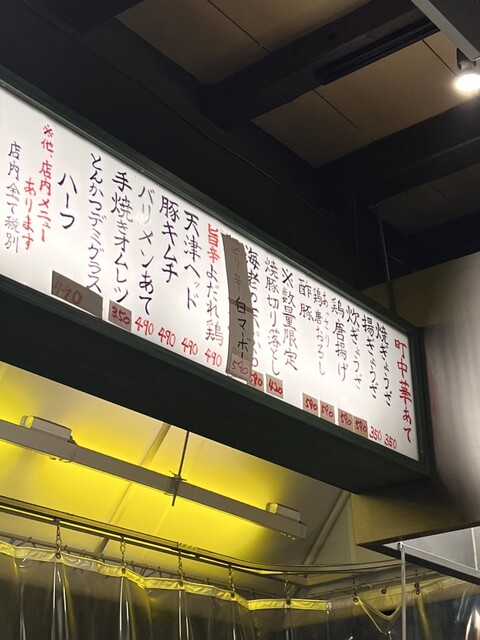 町中華あて
焼きぎょうざ 350
揚げぎょうざ 350
炊きぎょうざ 580
鶏唐揚げ 580
鶏唐あっさりおろし 590
酢豚 590
※数量限定
焼豚切り落とし 420
海老 580
白マーボー 590
旨辛よだれ鶏 490
天津ヘッド 490
豚キムチ 490
バリメンあて 490
手焼きオムレツ 350
とんかつデミグラス
ハーフ 490
※他、店内メニュー
あります
店内全て税別